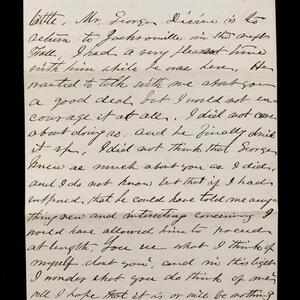 little. Mr. George Divine is to
return to Jacksonville in the night
I had a very pleasant time
with him while he was here. He
wanted to talk with me about you
a good deal but I would not en-
courage it at all. I did not care
about doing so. and he finally drick
it up. I did not think that George
knew as much about you as I did,
and I do not know but that if I had
supposed, that he could have told me any-
thing new and interesting concerning I
would have allowed him to proceed
at length. You see what I think of
myself. dont you? and in this light
I wonder what you do think of me?
well I hope that it is or will be nothing